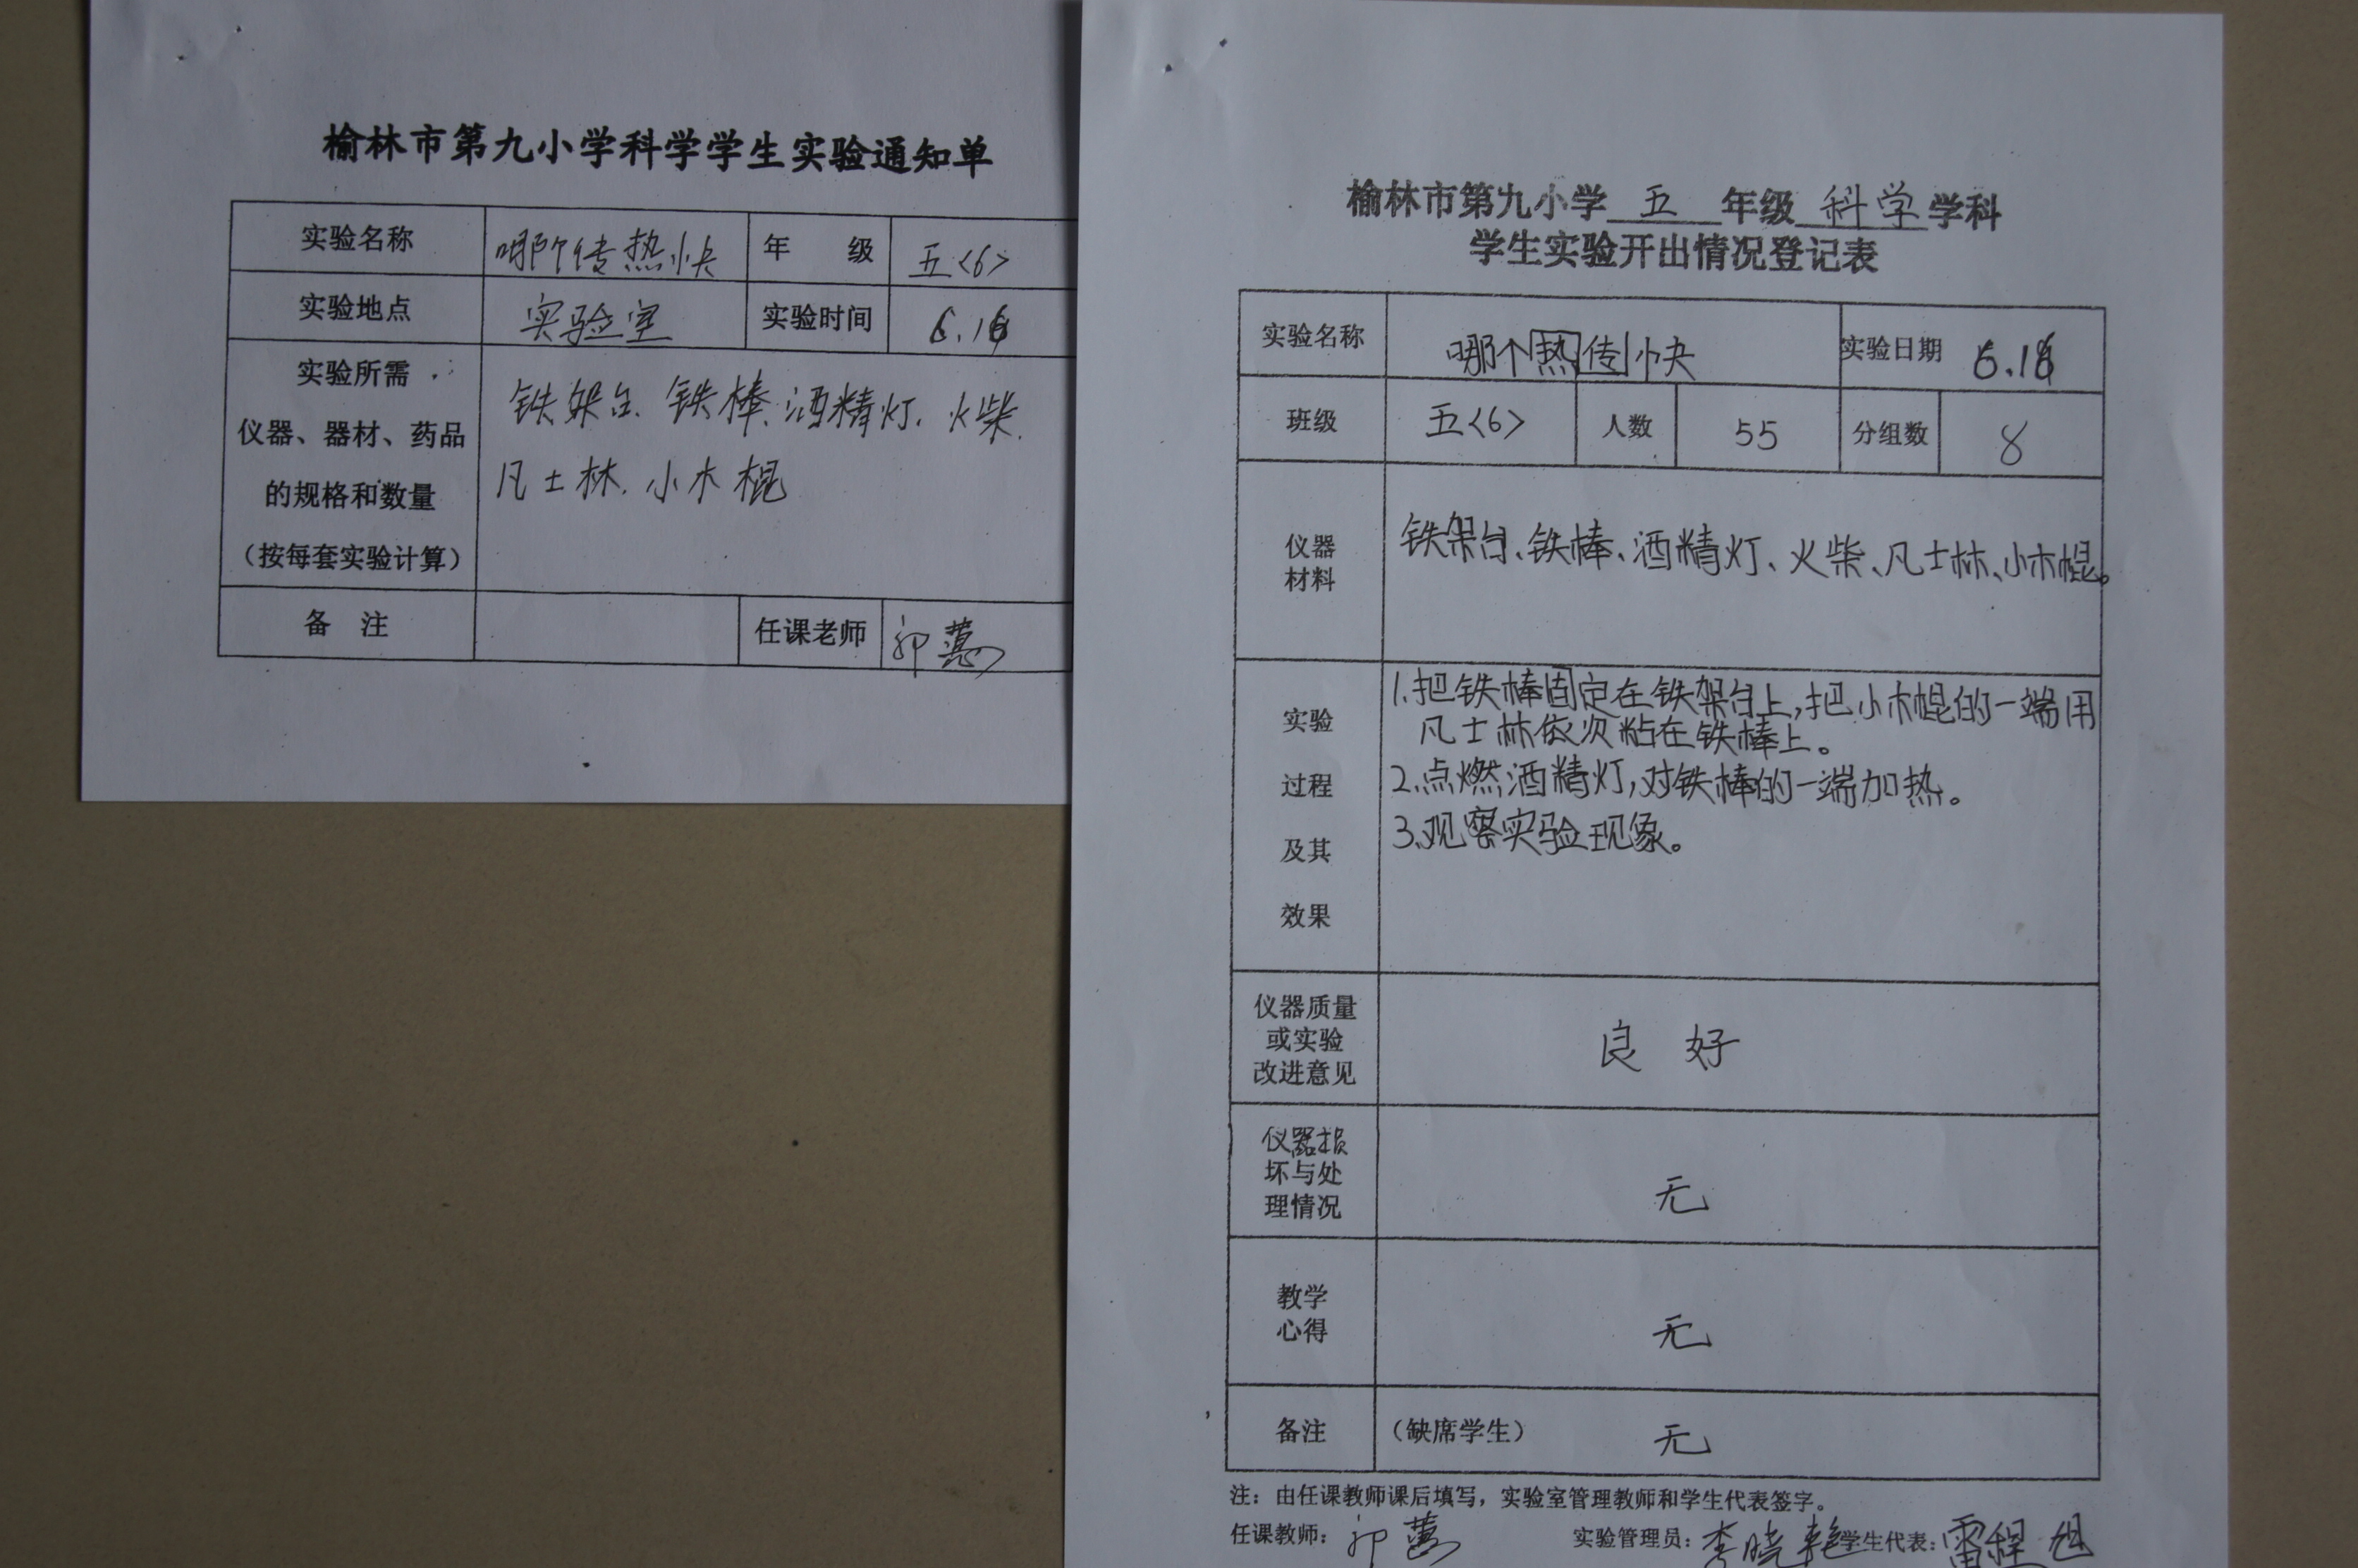 榆林市第九小学科学学生实验通知单
实验名称 哪个传热快 年 级 五<6>
实验地点 实验室 实验时间 6.16
实验所需
仪器、器材、药品
的规格和数量
（按每套实验计算）
铁架台、铁棒、酒精灯、火柴、
凡士林、小木棍
备 注 任课老师
榆林市第九小学 五 年级 科学 学科
学生实验开出情况登记表
实验名称 哪个热传快 实验日期 6.16
班级 五<6> 人数 55 分组数 8
仪器
材料
铁架台、铁棒、酒精灯、火柴、凡士林、小木棍。
实验
过程
及其
效果
1.把铁棒固定在铁架台上,把小木棍的一端用
凡士林依次粘在铁棒上。
2.点燃酒精灯,对铁棒的一端加热。
3.观察实验现象。
仪器质量
或实验
改进意见
良 好
仪器损
坏与处
理情况
无
教学
心得
无
备注 （缺席学生） 无
注：由任课教师课后填写，实验室管理教师和学生代表签字。
任课教师： 实验管理员：李晓艳 学生代表：